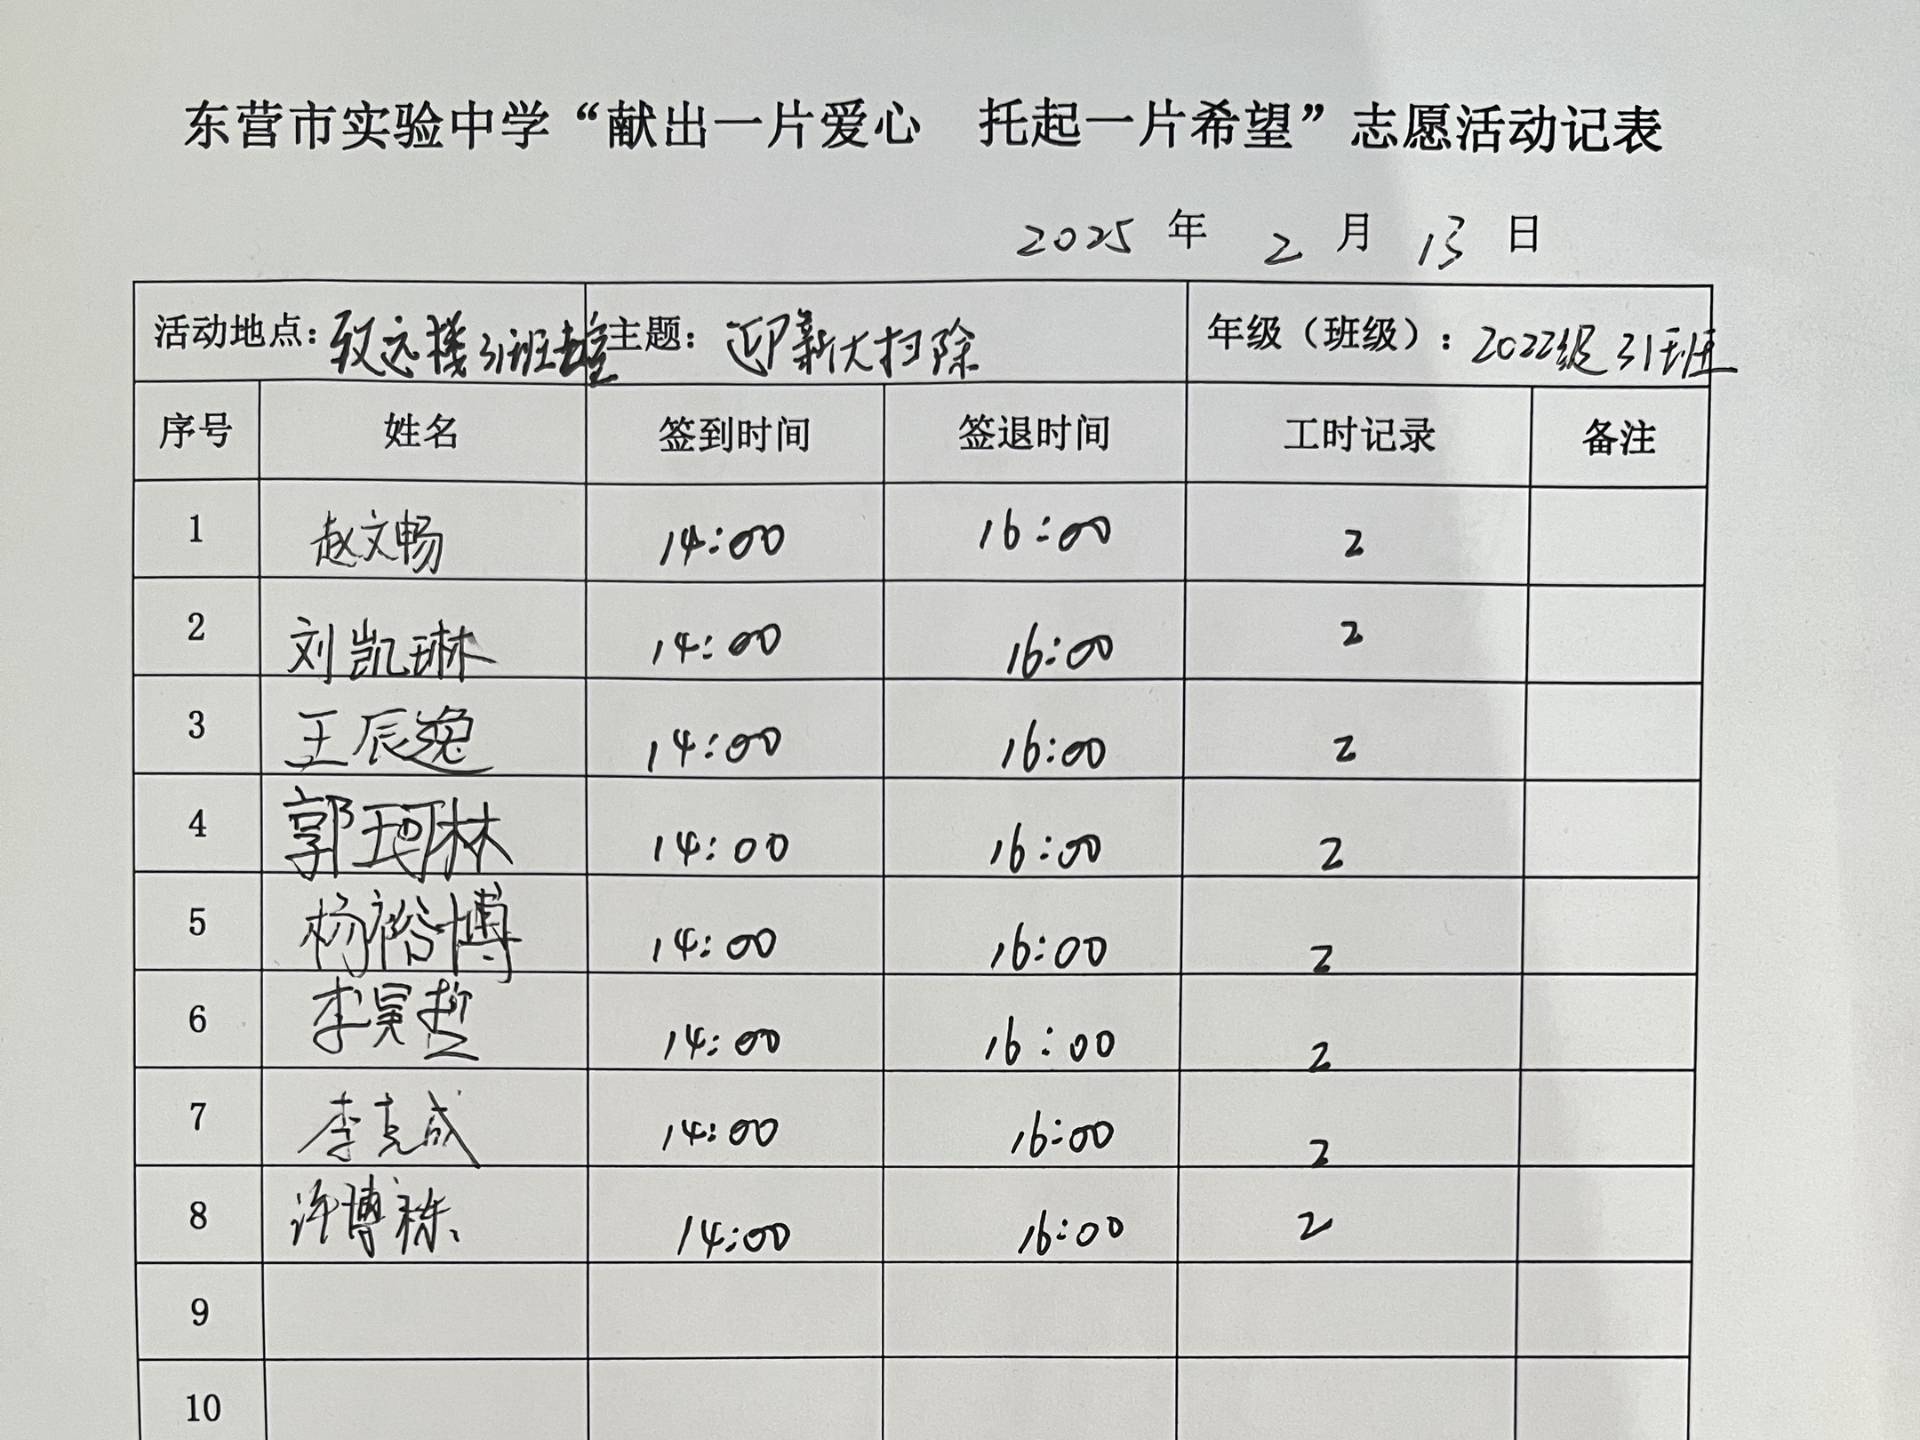 东营市实验中学“献出一片爱心　托起一片希望”志愿活动记表
2025 年 2 月 13 日
活动地点：致远楼31班教室 主题：迎新大扫除 年级（班级）：2022级31班
序号 姓名 签到时间 签退时间 工时记录 备注
1 赵文畅 14:00 16:00 2
2 刘凯琳 14:00 16:00 2
3 王辰逸 14:00 16:00 2
4 郭珂林 14:00 16:00 2
5 杨裕博 14:00 16:00 2
6 李昊哲 14:00 16:00 2
7 李克成 14:00 16:00 2
8 许博栋 14:00 16:00 2
9
10